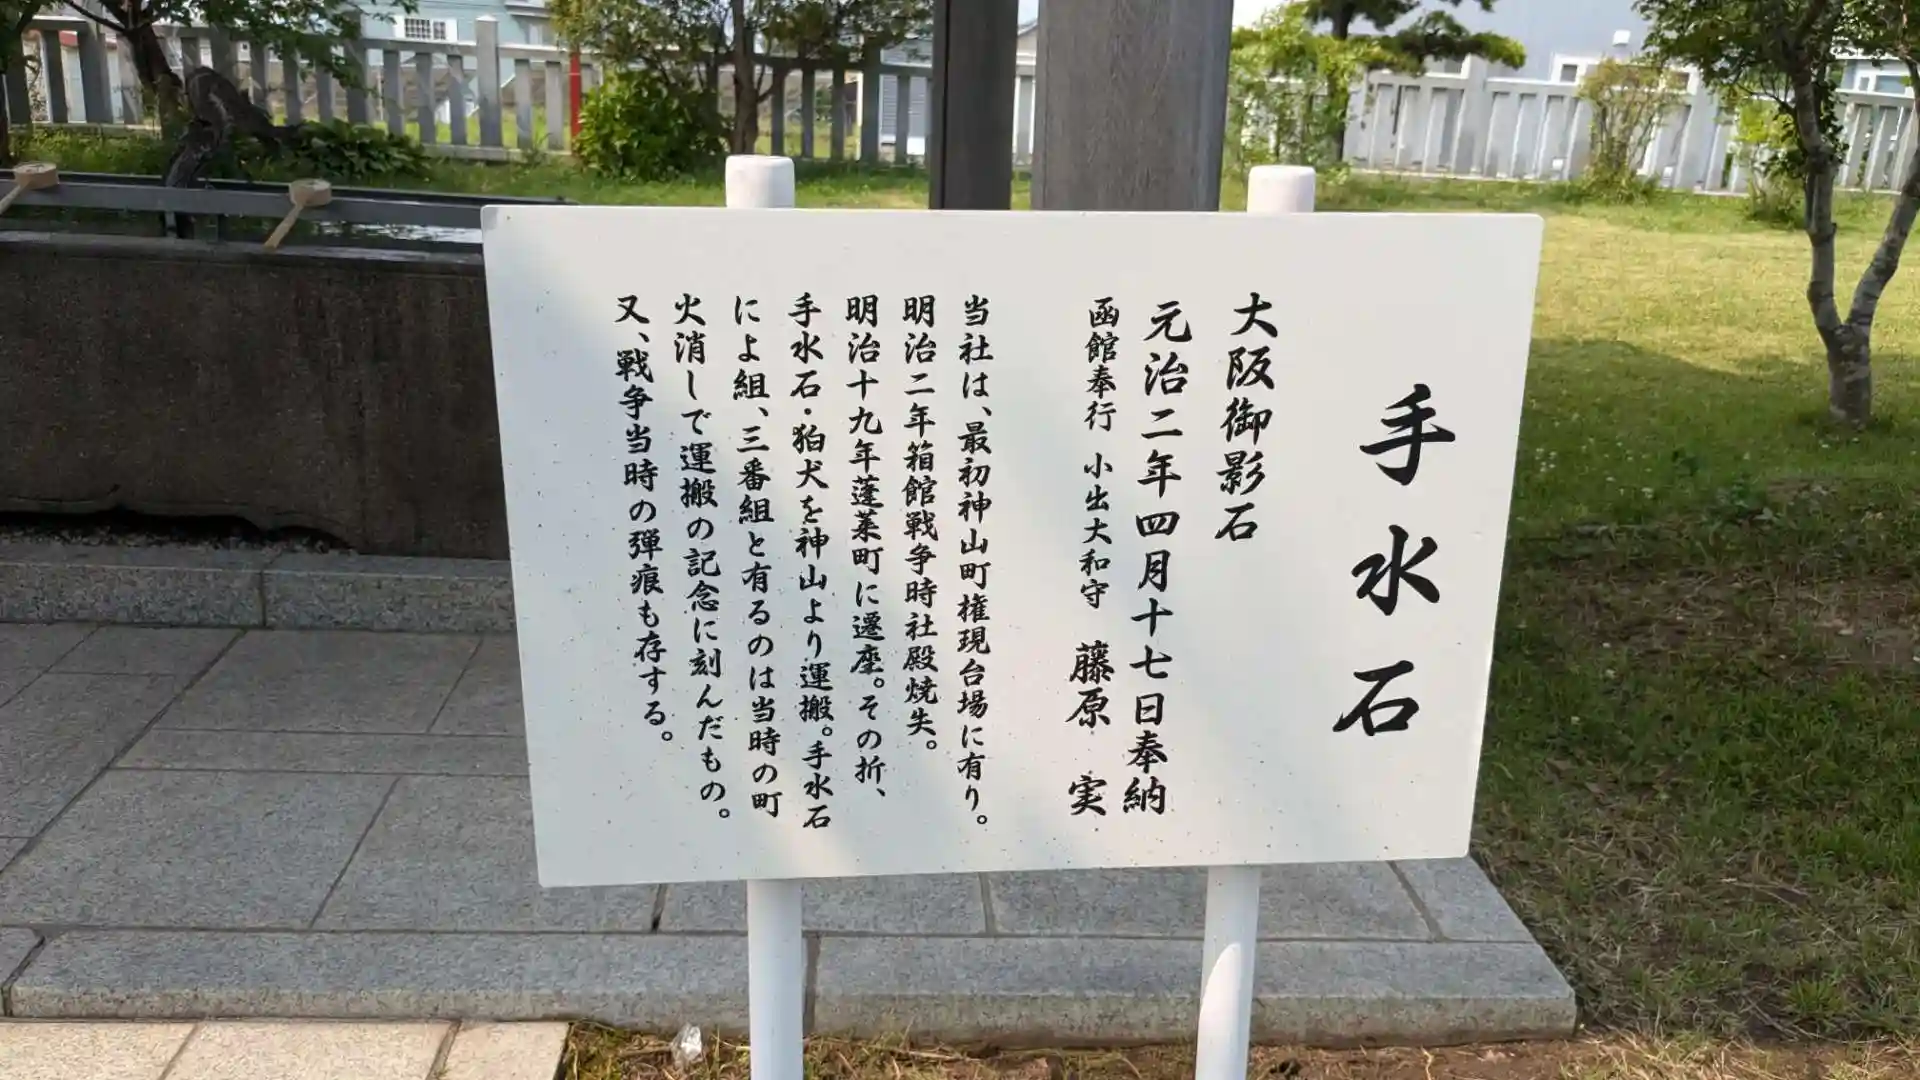 手水石
大阪御影石
元治二年四月十七日奉納
函館奉行 小出大和守 藤原 実
当社は、最初神山町権現台場に有り。
明治二年箱館戦争時社殿焼失。
明治十九年蓬莱町に遷座。その折、
手水石・狛犬を神山より運搬。手水石
によ組、三番組と有るのは当時の町
火消しで運搬の記念に刻んだもの。
又、戦争当時の弾痕も存する。